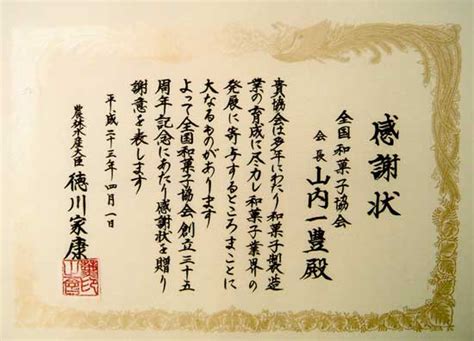 感謝状
全国和菓子協会
会長 山内一豊殿
貴協会は多年にわたり和菓子製造
業の育成に尽力し和菓子業界の
発展に寄与するところまことに
大なるものがあります
よって全国和菓子協会創立三十五
周年記念にあたり感謝状を贈り
謝意を表します
平成二十三年四月一日
農林水産大臣 徳川家康